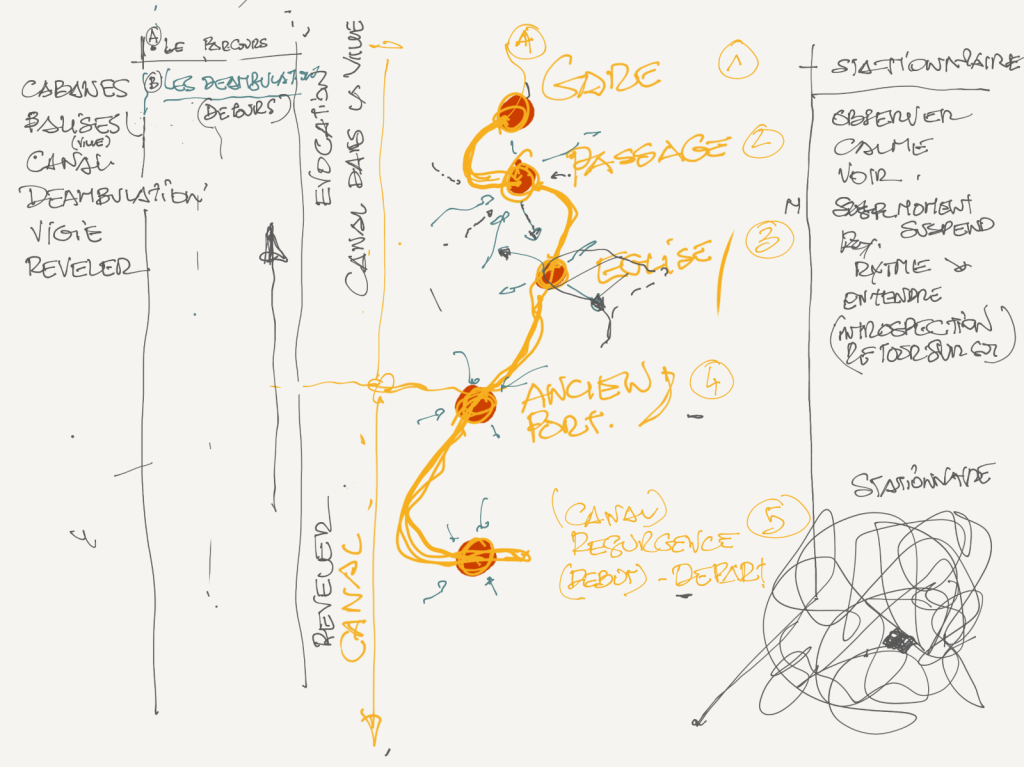 A LE PARCOURS
B LES DEAMBULATION
(DETOURS)
CABANES
BALISES
(VILLE)
CANAL
DEAMBULATION
VIGIE
REVELER
EVOCATION
CANAL DANS LA VILLE
REVELER
CANAL
A
GARE
1
PASSAGE
2
EGLISE
3
ANCIEN
PORT.
4
(CANAL)
RESURGENCE
(DEBUT) - DEPART
5
STATIONNAIRE
OBSERVER
CALME
VOIR
M
MOMENT
SUSPEND
RYTME
ENTENDRE
(INTROSPECTION
RETOUR SUR SOI)
STATIONNAIRE